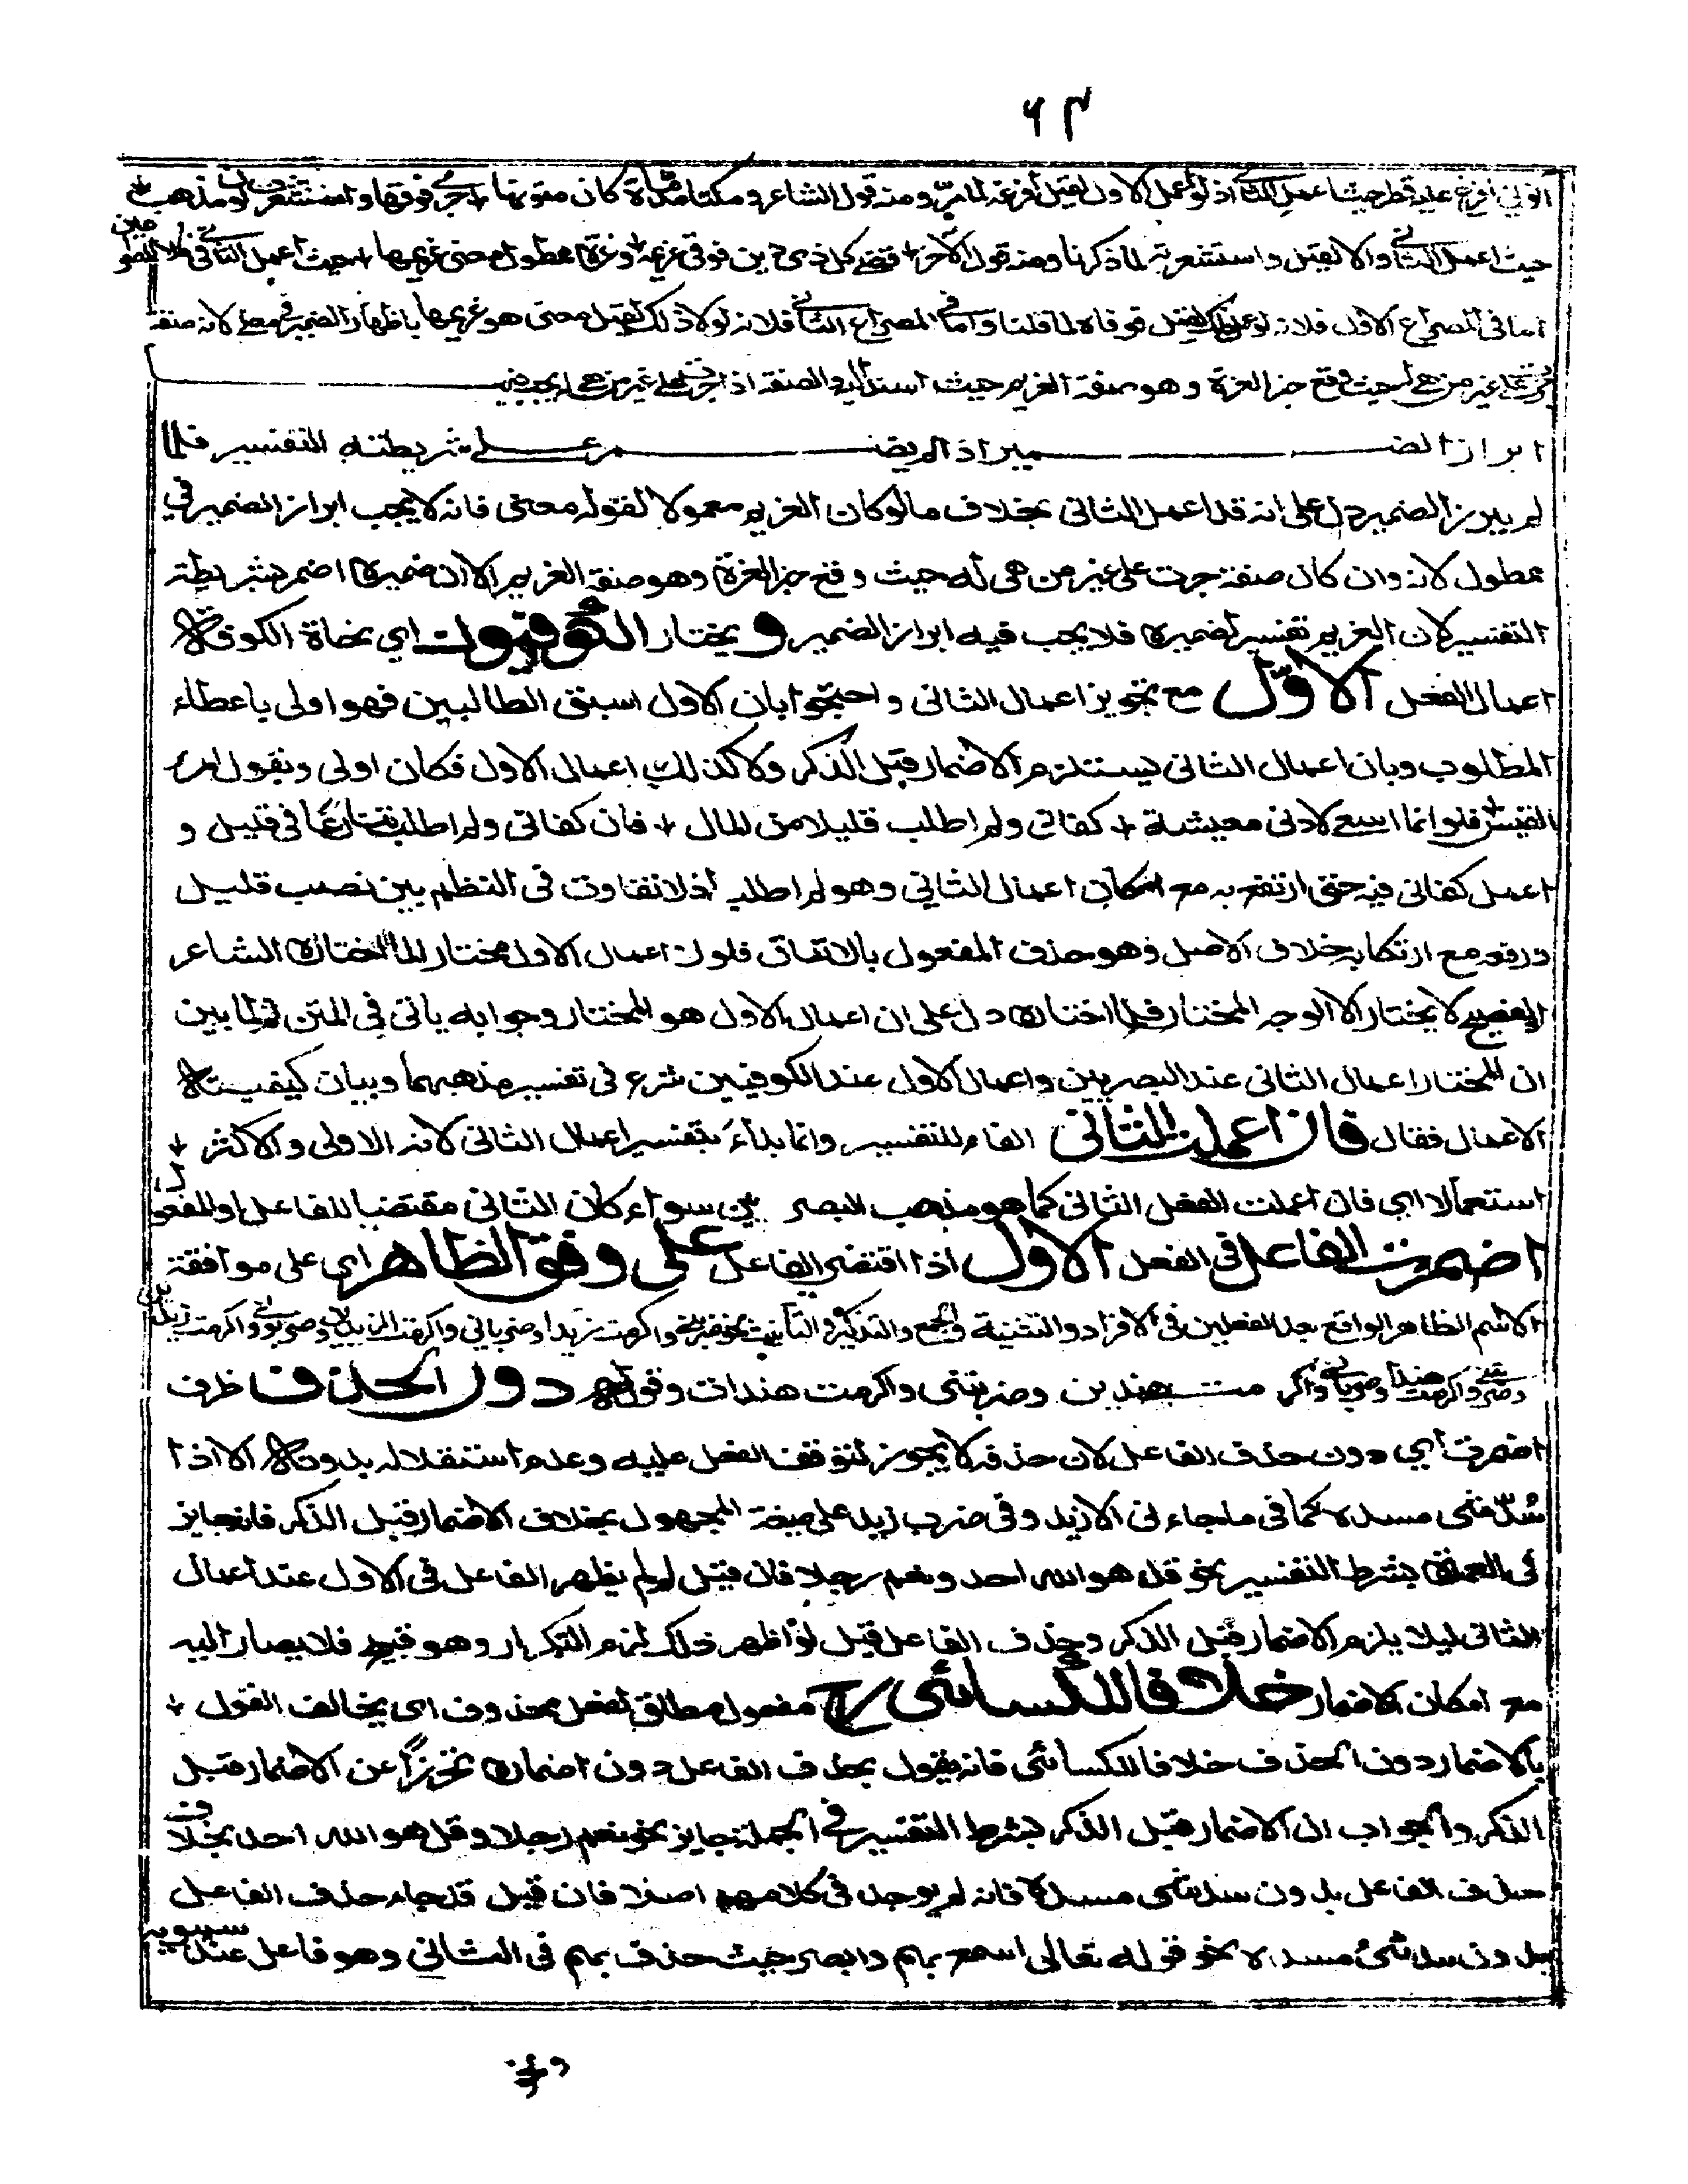 ٦٣
اتوني افرغ عليه قطرا حيث اعمل الثاني اذ لو اعمل الاول لقيل افرغه لما مر ومنه قول الشاعر و كمتا مدماة كان متونها + جرى فوقها واستشعرت لون مذهب +
حيث اعمل الثاني والا لقيل واستشعرته لما ذكرنا ومنه قول الآخر + قضى كل ذي دين فوفى غريمه + وعزة ممطول معنى غريمها + حيث اعمل الثاني في كلا الموضعين
اما في المصراع الاول فلانه لو لقيل فوفاه لما قلنا واما في المصراع الثاني فلانه لولا ذلك لقيل معنى هو غريمها باظهار الضمير في معنى لانه صفة
جرت على غير من هي له حيث وقع خبر العزة وهو صفة الغريم حيث اسند اليه والصفة اذا جرت على غير من هي له يجب فيه
ابراز الضمير اذا لم يضمر على شريطة التفسير فلما
لم يبرز الضمير دل على انه قد اعمل الثاني بخلاف ما لو كان الغريم معمولا لقوله معنى فانه لا يجب ابراز الضمير في
ممطول لانه وان كان صفة جرت على غير من هي له حيث وقع خبر العزة وهو صفة الغريم الا ان ضميره اضمر بشريطة
التفسير لان الغريم تفسير لضميره فلا يجب فيه ابراز الضمير و يختار الكوفيون اي نحاة الكوفة
اعمال الفعل الاول مع تجويز اعمال الثاني و احتجوا بان الاول اسبق الطالبين فهو اولى باعطاء
المطلوب وبان اعمال الثاني يستلزم الاضمار قبل الذكر ولا كذلك اعمال الاول فكان اولى وبقول امرء
القيس + فلو انما اسعى لادنى معيشة + كفاني ولم اطلب قليلا من المال + فان كفاني ولم اطلب تنازعا في قليل و
اعمل كفاني فيه حتى ارتفع به مع امكان اعمال الثاني وهو لم اطلب اذ لا تفاوت في النظم بين نصب قليل
ورفعه مع ارتكابه خلاف الاصل وهو حذف المفعول بالاتفاق فلولا ان اعمال الاول مختار لما اختاره الشاعر
الفصيح لا يختار الا الوجه المختار فلما اختاره دل على ان اعمال الاول هو المختار وجوابه ياتي في المتن ثم لما بين
ان المختار اعمال الثاني عند البصريين واعمال الاول عند الكوفيين شرع في تفسير مذهبهما وبيان كيفية
الاعمال فقال فان اعملت الثاني الفاء للتفسير وانما بدأ بتفسير اعمال الثاني لانه الاولى والاكثر +
استعمالا اي فان اعملت الفعل الثاني كما هو مذهب البصريين سواء كان الثاني مقتضيا للفاعل او المفعول
اضمرت الفاعل في الفعل الاول اذا اقتضى الفاعل على وفق الظاهر اي على موافقة
الاسم الظاهر الواقع بعد الفعلين في الافراد والتثنية والجمع والتذكير والتأنيث نحو ضربني واكرمت زيدا وضرباني واكرمت الزيدين وضربوني واكرمت زيدين
وضربتني واكرمت هندا وضربتاني واكرمت هندين وضربنني واكرمت هندات وقوله دون الحذف ظرف
اضمرت اي دون حذف الفاعل لان حذفه لا يجوز لتوقف الفعل عليه وعدم استقلاله بدونه الا اذا
سد شيء مسده كما في ما جاءني الا زيد وفي ضرب زيد على صيغة المجهول بخلاف الاضمار قبل الذكر فانه جايز
في العمدة بشرط التفسير نحو قل هو الله احد ونعم رجلا فان قيل لم لم يظهر الفاعل في الاول عند اعمال
الثاني ليلا يلزم الاضمار قبل الذكر وحذف الفاعل قيل لو اظهر ذلك لزم التكرار وهو قبيح فلا يصار اليه
مع امكان الاضمار خلافا للكسائي مفعول مطلق لفعل محذوف اي يخالف القول +
بالاضمار دون الحذف خلافا للكسائي فانه يقول بحذف الفاعل دون اضماره تحرزا عن الاضمار قبل
الذكر والجواب ان الاضمار قبل الذكر بشرط التفسير في الجملة جايز نحو نعم رجلا وقل هو الله احد بخلاف
حذف الفاعل بدون سد شيء مسده فانه لم يوجد في كلامهم اصلا فان قيل قد جاء حذف الفاعل
بدون سد شيء مسده نحو قوله تعالى اسمع بهم وابصر حيث حذف بهم في الثاني وهو فاعل عند سيبويه